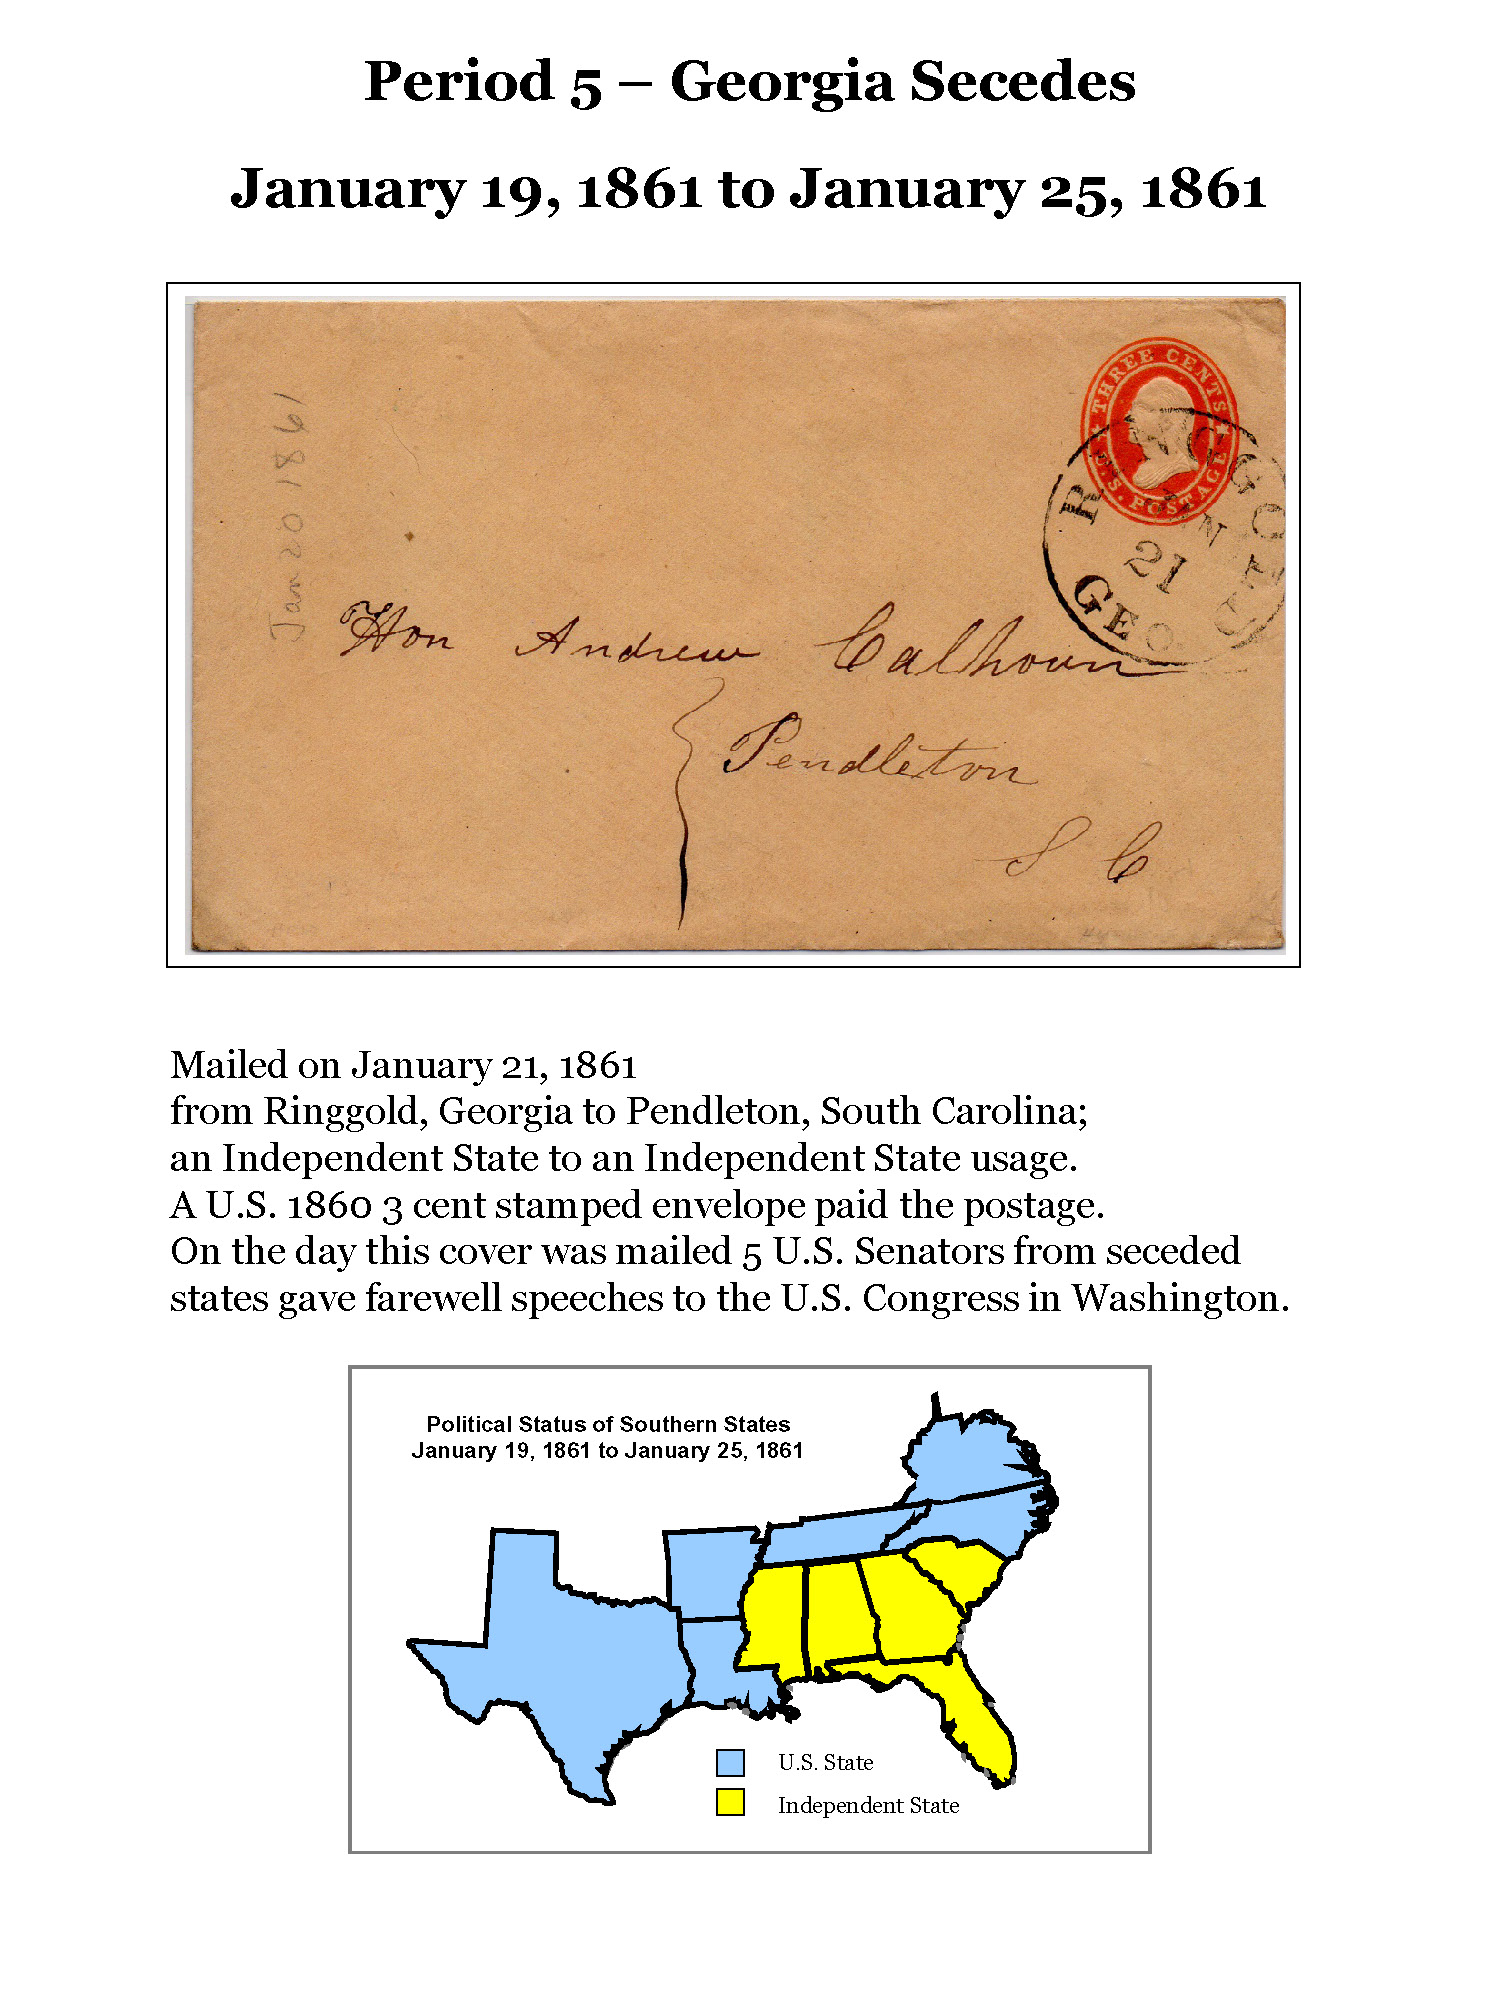 Period 5 – Georgia Secedes
January 19, 1861 to January 25, 1861
Jan 20 1861
THREE CENTS
U.S. POSTAGE
RINGGOLD
JAN
21
GEO.
Hon Andrew Calhoun
Pendleton
S C
Mailed on January 21, 1861
from Ringgold, Georgia to Pendleton, South Carolina;
an Independent State to an Independent State usage.
A U.S. 1860 3 cent stamped envelope paid the postage.
On the day this cover was mailed 5 U.S. Senators from seceded
states gave farewell speeches to the U.S. Congress in Washington.
Political Status of Southern States
January 19, 1861 to January 25, 1861
U.S. State
Independent State